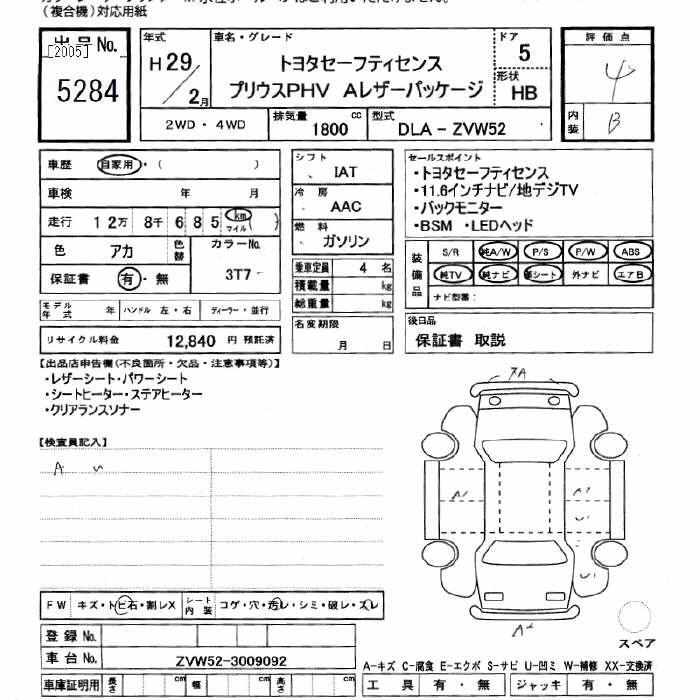 (複合機)対応用紙
出品No.
[2005]
5284
年式
H29/2月
車名・グレード
トヨタセーフティセンス
プリウスPHV Aレザーパッケージ
ドア
5
形状
HB
評価点
4
内装
B
2WD・4WD
排気量 1800 cc
型式 DLA-ZVW52
車歴 自家用・( )
車検 年 月
走行 12万 8千 685 km マイル
色 アカ 色替 カラーNo. 3T7
保証書 有・無
モデル年式 年 ハンドル 左・右 ディーラー・並行
リサイクル料金 12,840 円 預託済
シフト IAT
冷房 AAC
燃料 ガソリン
乗車定員 4 名
積載量 kg
総重量 kg
名変期限
月 日
セールスポイント
・トヨタセーフティセンス
・11.6インチナビ/地デジTV
・バックモニター
・BSM ・LEDヘッド
装備品
S/R 純A/W P/S P/W ABS
純TV 純ナビ 革シート 外ナビ エアB
ナビ型番:
後日品
保証書 取説
【出品店申告欄(不良箇所・欠品・注意事項等)】
・レザーシート・パワーシート
・シートヒーター・ステアヒーター
・クリアランスソナー
【検査員記入】
A U
FW キズ・トビ石・割レX シート内装 コゲ・穴・汚レ・シミ・破レ・スレ
登録No.
車台No. ZVW52-3009092
車庫証明用 長さ cm 幅 cm 高さ cm
A1
A1
U1
U1
A2
スペア
A-キズ C-腐食 E-エクボ S-サビ U-凹ミ W-補修 XX-交換済
工具 有・無 ジャッキ 有・無